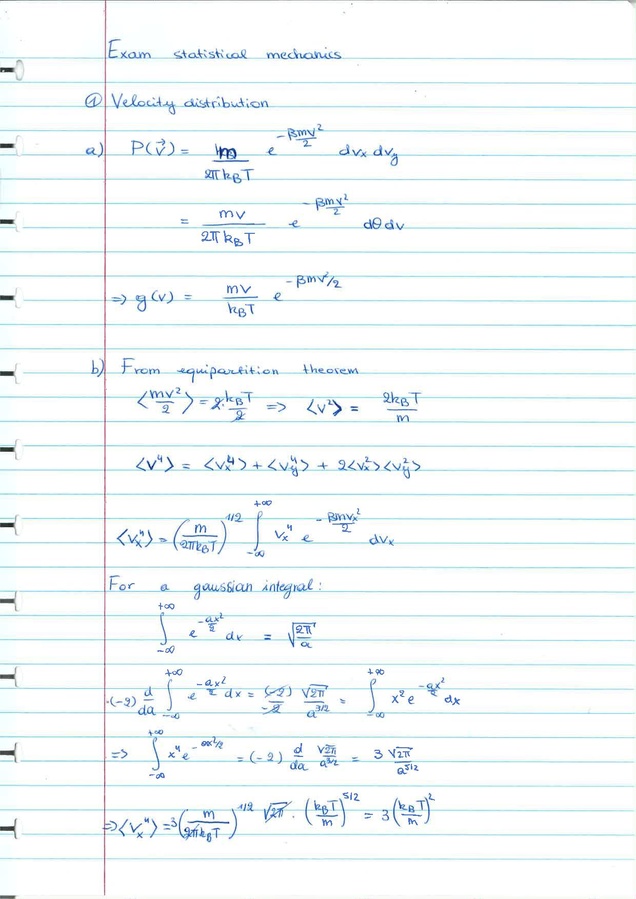 Exam statistical mechanics
① Velocity distribution
a) P(v⃗) = m/(2πk_BT) e^(-βmv²/2) dvx dvy
= mv/(2πk_BT) e^(-βmv²/2) dθ dv
=> g(v) = mv/(k_BT) e^(-βmv²/2)
b) From equipartition theorem
<mv²/2> = 2·k_BT/2 => <v²> = 2k_BT/m
<v⁴> = <vx⁴> + <vy⁴> + 2<vx²><vy²>
<vx⁴> = (m/(2πk_BT))^(1/2) ∫_{-∞}^{+∞} vx⁴ e^(-βmvx²/2) dvx
For a gaussian integral:
∫_{-∞}^{+∞} e^(-ax²/2) dx = √(2π/a)
·(-2) d/da ∫_{-∞}^{+∞} e^(-ax²/2) dx = (-2)/(-2) √2π/a^(3/2) = ∫_{-∞}^{+∞} x² e^(-ax²/2) dx
=> ∫_{-∞}^{+∞} x⁴ e^(-ax²/2) = (-2) d/da √2π/a^(3/2) = 3 √2π/a^(5/2)
=> <vx⁴> = 3 (m/(2πk_BT))^(1/2) √2π · (k_BT/m)^(5/2) = 3 (k_BT/m)²